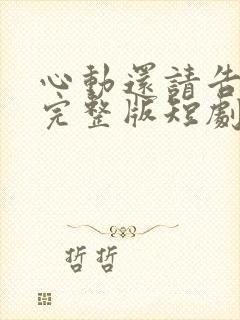 心動還請告
完整版短劇
哲哲